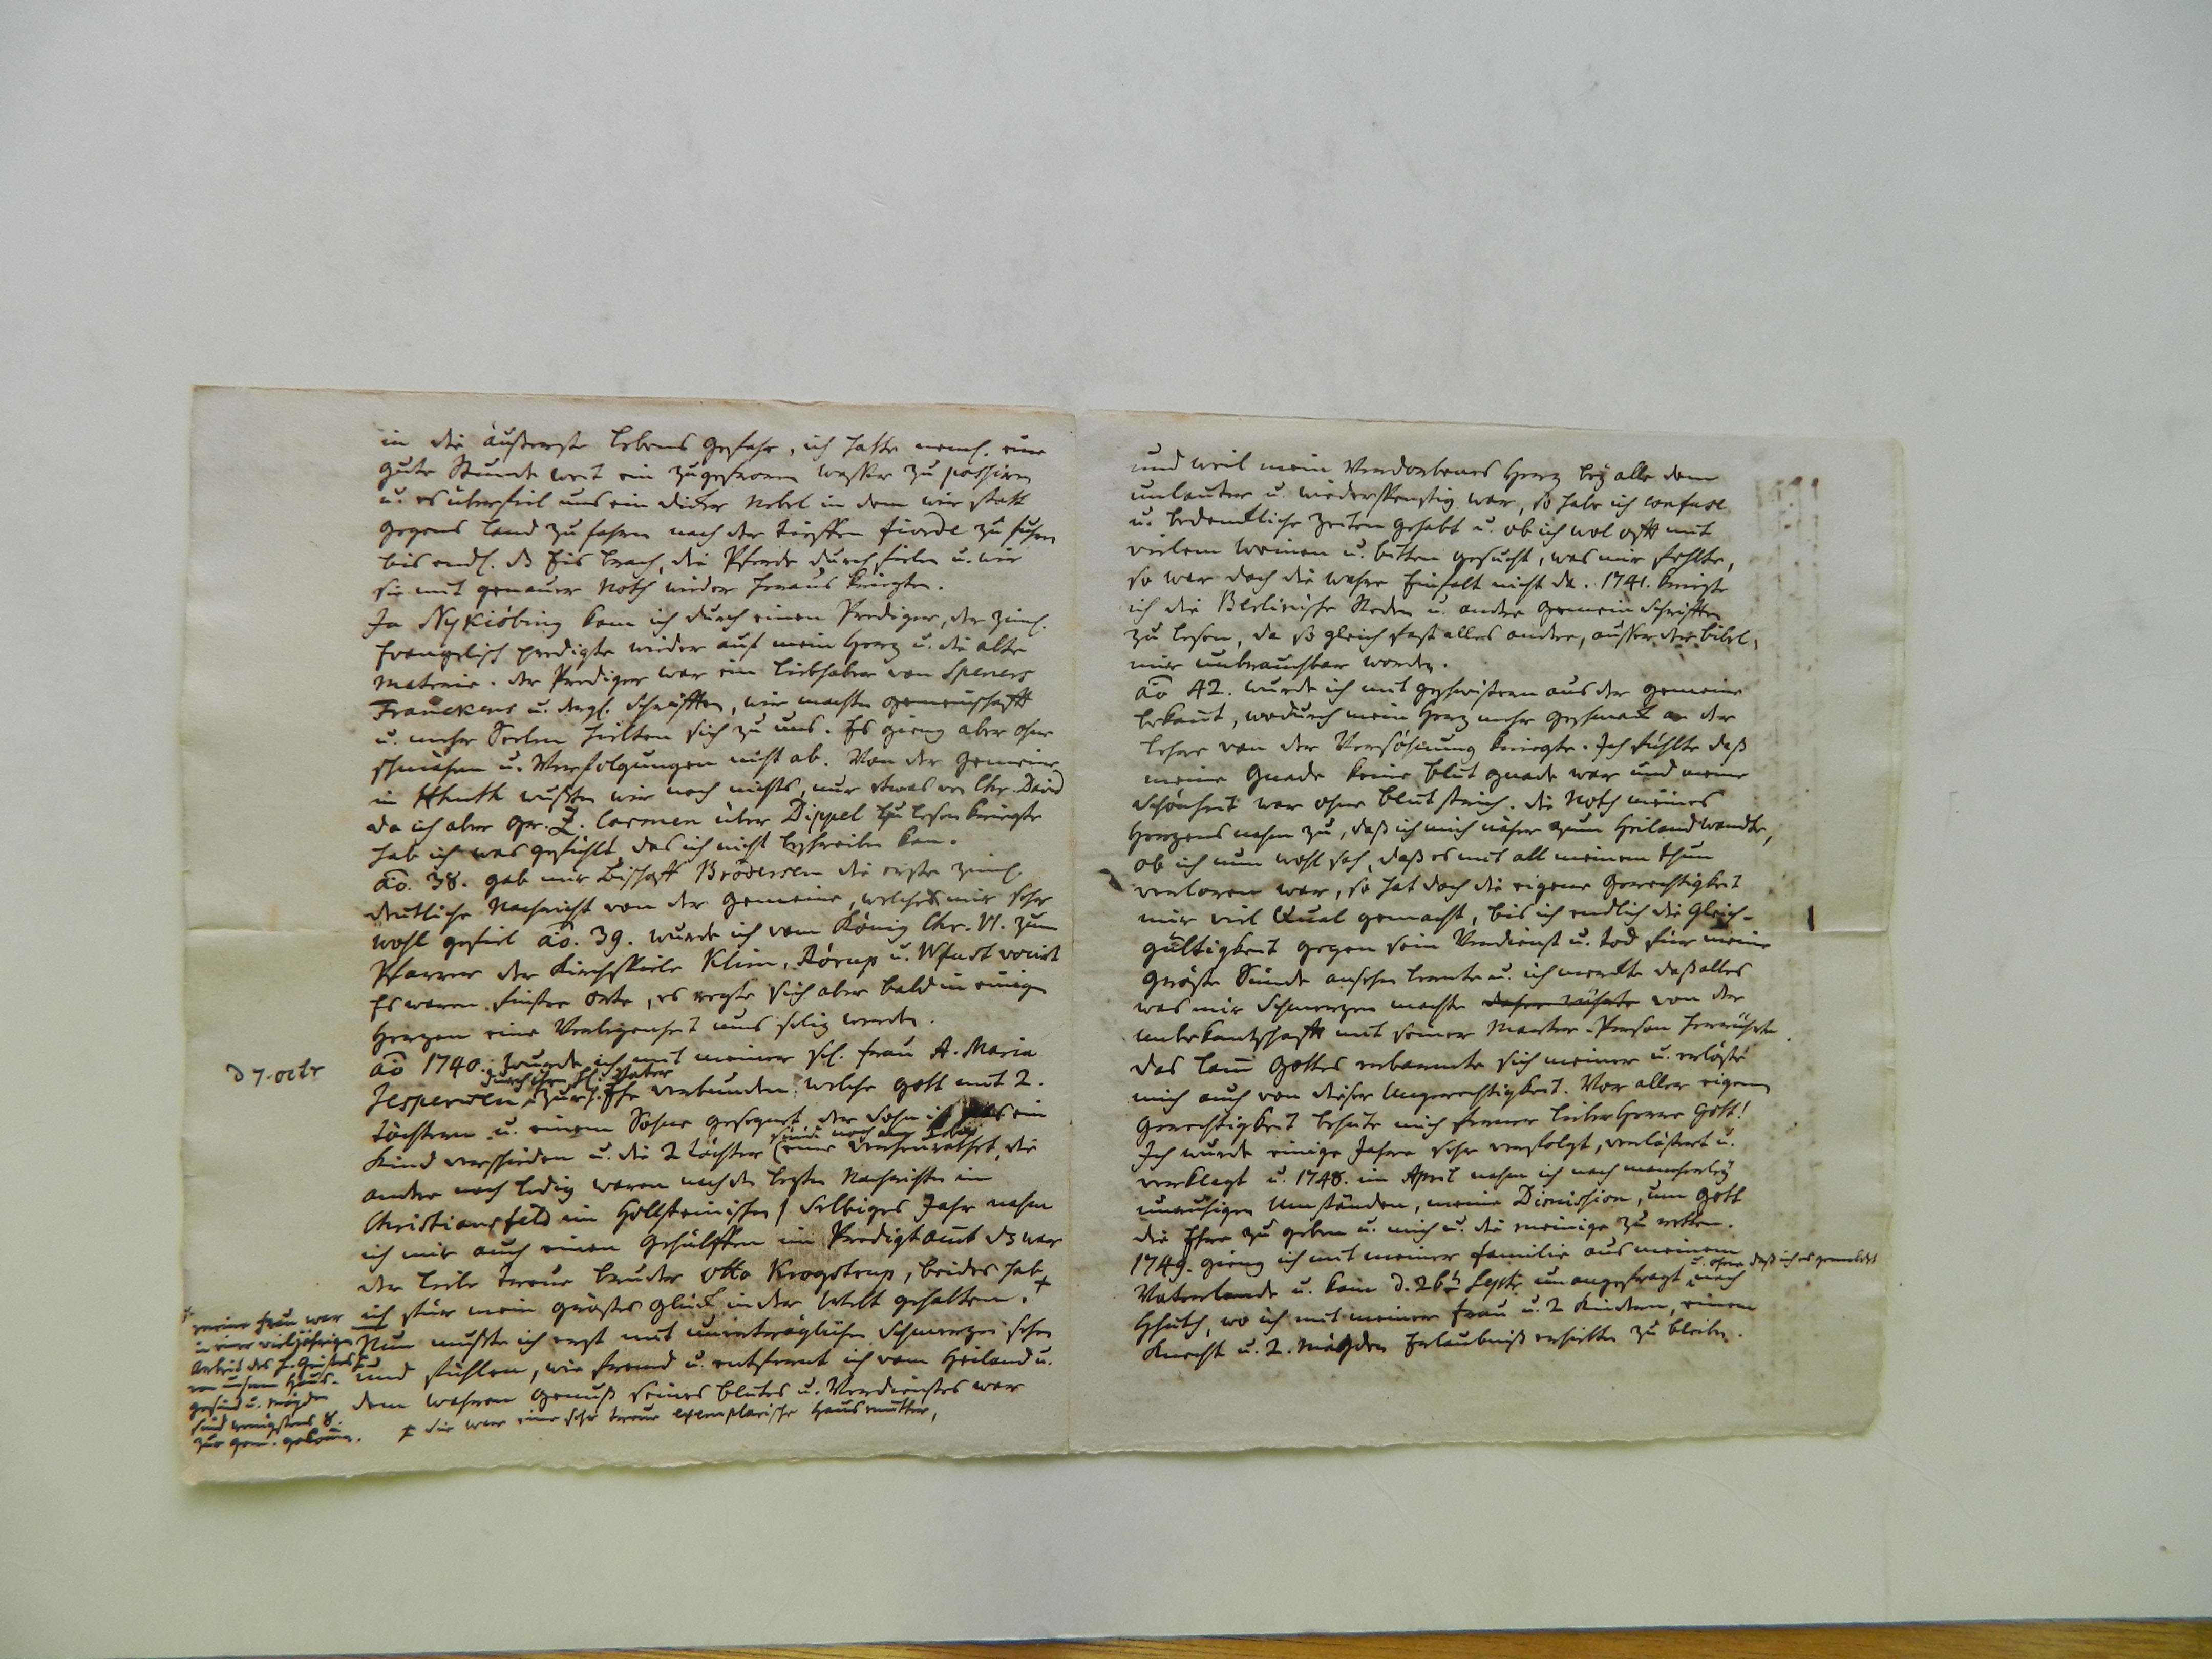 in die äußerste Lebens Gefahr, ich hatte neml. eine
gute Stunde weit ein zugefroren Wasser zu passiren
u. es überfiel uns ein dicker Nebel in dem wir statt
gegens Land zu fahren nach der tieffen fiorde zu fuhren
bis endl. ds Eis brach, die Pferde durch fielen u. wir
sie mit genauer Noth wieder heraus kriegten.
In Nykiöbing kam ich durch einen Prediger, der ziml.
Evangelisch predigte wieder auf mein Herz u. die alte
Materie. der Prediger war ein Liebhaber von Speners
Franckens u. dergl. Schrifften, wir machten gemeinschafft
u. mehr Seelen hielten sich zu uns. Es gieng aber ohne
schmähen u. Verfolgungen nicht ab. Von der Gemeine
in Hhuth wußten wir noch nichts, nur etwas von Chr. David
da ich aber Gr. Z. Carmen über Dippel zu lesen kriegte
hab ich was gefühlt, das ich nicht beschreiben kan.
ao. 38. gab mir Bischoff Brodersen die erste ziml.
deutliche Nachricht von der Gemeine, welches mir sehr
wohl gefiel ao. 39. wurde ich vom König Chr. VI. zum
Pfarrer der Kirchspiele Klim, Törup u. Wust vocirt
Es waren finstre Orte, es regte sich aber bald in einigen
Herzen eine Verlegenheit ums selig werden.
d 7. octr
ao 1740. wurde ich mit meiner sel. Frau A. Maria
durch ihren sel. Vater
Jespersen, zur h. Ehe verbunden, welche Gott mit 2.
Töchtern u. einem Sohne gesegnet der Sohn ist als ein
sind noch am Leben
Kind verschieden u. die 2 Töchter (eine verheirathet, die
andre noch ledig waren nach den lezten Nachrichten in
Christiansfeld im Hollsteinischen) Selbiges Jahr nahm
ich mir auch einen Gehülffen im Predigtamt ds war
der liebe treue Bruder Otto Krogstrup, beides hab
ich für mein größtes Glück in der Welt gehalten. +
Nun mußte ich erst mit unerträglichen Schmerzen sehen
und fühlen, wie fremd u. entfernt ich vom Heiland u.
dem wahren Genuß seines Blutes u. Verdienstes war
+ sie war eine sehr treue exemplarische Hausmutter,
meine Frau war
in einer vieljährigen
Arbeit des h. Geistes
von unserm Haus-
gesind u. Mägden
sind wenigstens 8.
zur Gem. gekomen.
und weil mein Verdorbenes Herz bey alle dem
unlauter u. wiederspenstig war, so habe ich confuse
u. bedenkliche Zeiten gehabt u. ob ich wol offt mit
vielem Weinen u. bitten gesucht, was mir fehlte,
so war doch die wahre Einfalt nicht da. 1741. kriegte
ich die Berlinische Reden u. andre Gemein Schrifften
zu lesen, da ds gleich fast alles andre, ausser der Bibel,
mir unbrauchbar worden.
ao 42. wurde ich mit Geschwistern aus der Gemeine
bekant, wodurch mein Herz mehr Geschmack an der
Lehre von der Versöhnung kriegte. Ich fühlte daß
meine Gnade keine Blut gnade war und meine
Schönheit war ohne Blutstrich. die Noth meines
Herzens nahm zu, daß ich mich näher zum Heiland wandte,
ob ich nun wohl sah, daß es mit all meinem thun
verloren war, so hat doch die eigene Gerechtigkeit
mir viel Qual gemacht, bis ich endlich die Gleich-
gültigkeit gegen sein Verdienst u. Tod für meine
gröste Sünde ansehen lernte u. ich merckte daß alles
was mir Schmerzen machte daher rührte von der
unbekantschafft mit seiner Marter-Person herrührte.
das Lam Gottes erbarmte sich meiner u. erlößte
mich auch von dieser Ungerechtigkeit. Vor aller eignen
Gerechtigkeit behüte mich ferner lieber Herre Gott!
Ich wurde einige Jahre sehr verfolgt, verlästert u.
verklagt u. 1748. im April nahm ich nach mancherley
unruhigen Umständen, meine Dimission, um Gott
die Ehre zu geben u. mich u. die meinige zu retten.
1749. gieng ich mit meiner Familie aus meinem
u. ohne daß ich es gemeldet
Vaterlande u. kam d. 26t Septr. unangefragt nach
Hhuth, wo ich mit meiner Frau u. 2 Kindern, einem
Knecht u. 2. Mägden Erlaubniß erhielte zu bleiben.